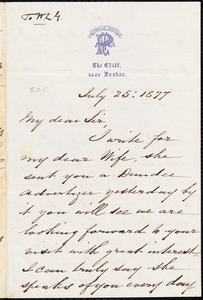 The Cliff,
near Dundee.
July 25: 1877
My dear Sir
I write for
my dear Wife, she
sent you a Dundee
Advertizer yesterday by
it you will see we are
looking forward to your
visit with great interest
I can truly say she
speaks of you every day